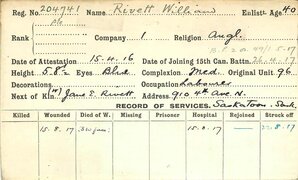 Reg. No. 204741 Name Rivett William Enlistt. Age 40
Rank Pte Company 1 Religion Angl.
B.F.20. 49/1-5-17
Date of Attestation 15.4.16 Date of Joining 15th Can. Battn. 26.4.17
Height 5.8½ Eyes Blue Complexion Med. Original Unit 96
Decorations Occupation Labourer
Next of Kin (W) Jane E. Rivett Address 910 4th Ave. N.
RECORD OF SERVICES. Saskatoon. Sask.
Killed Wounded Died of W. Missing Prisoner Hospital Rejoined Struck off
15.8.17 15.8.17 22.8.17